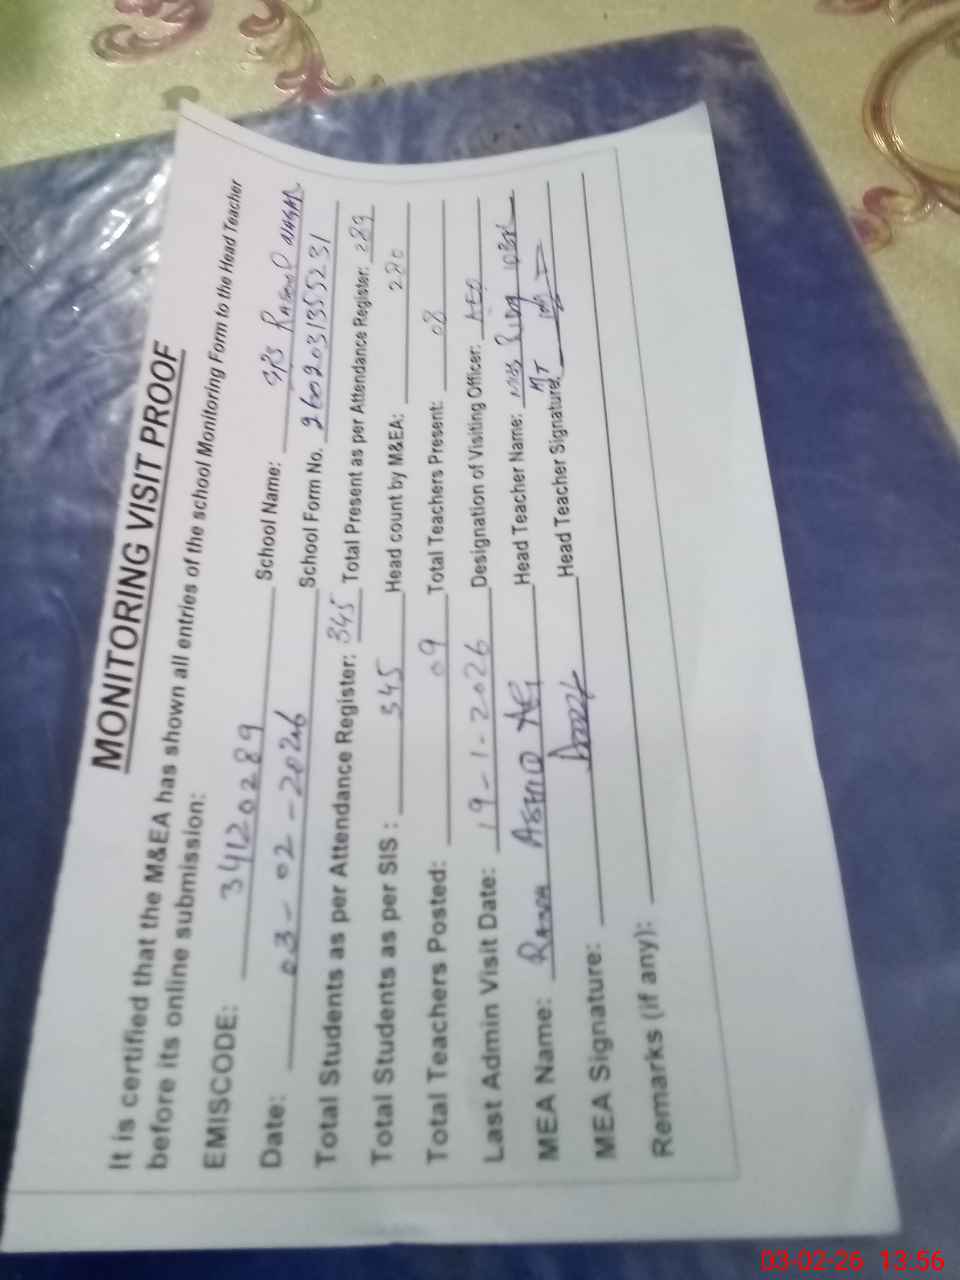 MONITORING VISIT PROOF
It is certified that the M&EA has shown all entries of the school Monitoring Form to the Head Teacher
before its online submission:
EMISCODE: 34120289 School Name: GPS Rasool
Date: 03-02-2026 School Form No. 2602031355231
Total Students as per Attendance Register: 345 Total Present as per Attendance Register: 289
Total Students as per SIS: 345 Head count by M&EA: 280
Total Teachers Posted: 09 Total Teachers Present: 08
Last Admin Visit Date: 19-1-2026 Designation of Visiting Officer: AEO
MEA Name: Head Teacher Name: Miss
MEA Signature: Head Teacher Signature:
Remarks (if any):
03-02-26 13:56